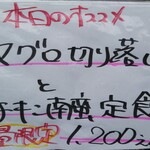 本日のオススメ
マグロ切り落し
と
チキン南蛮定食
量限定 1,200